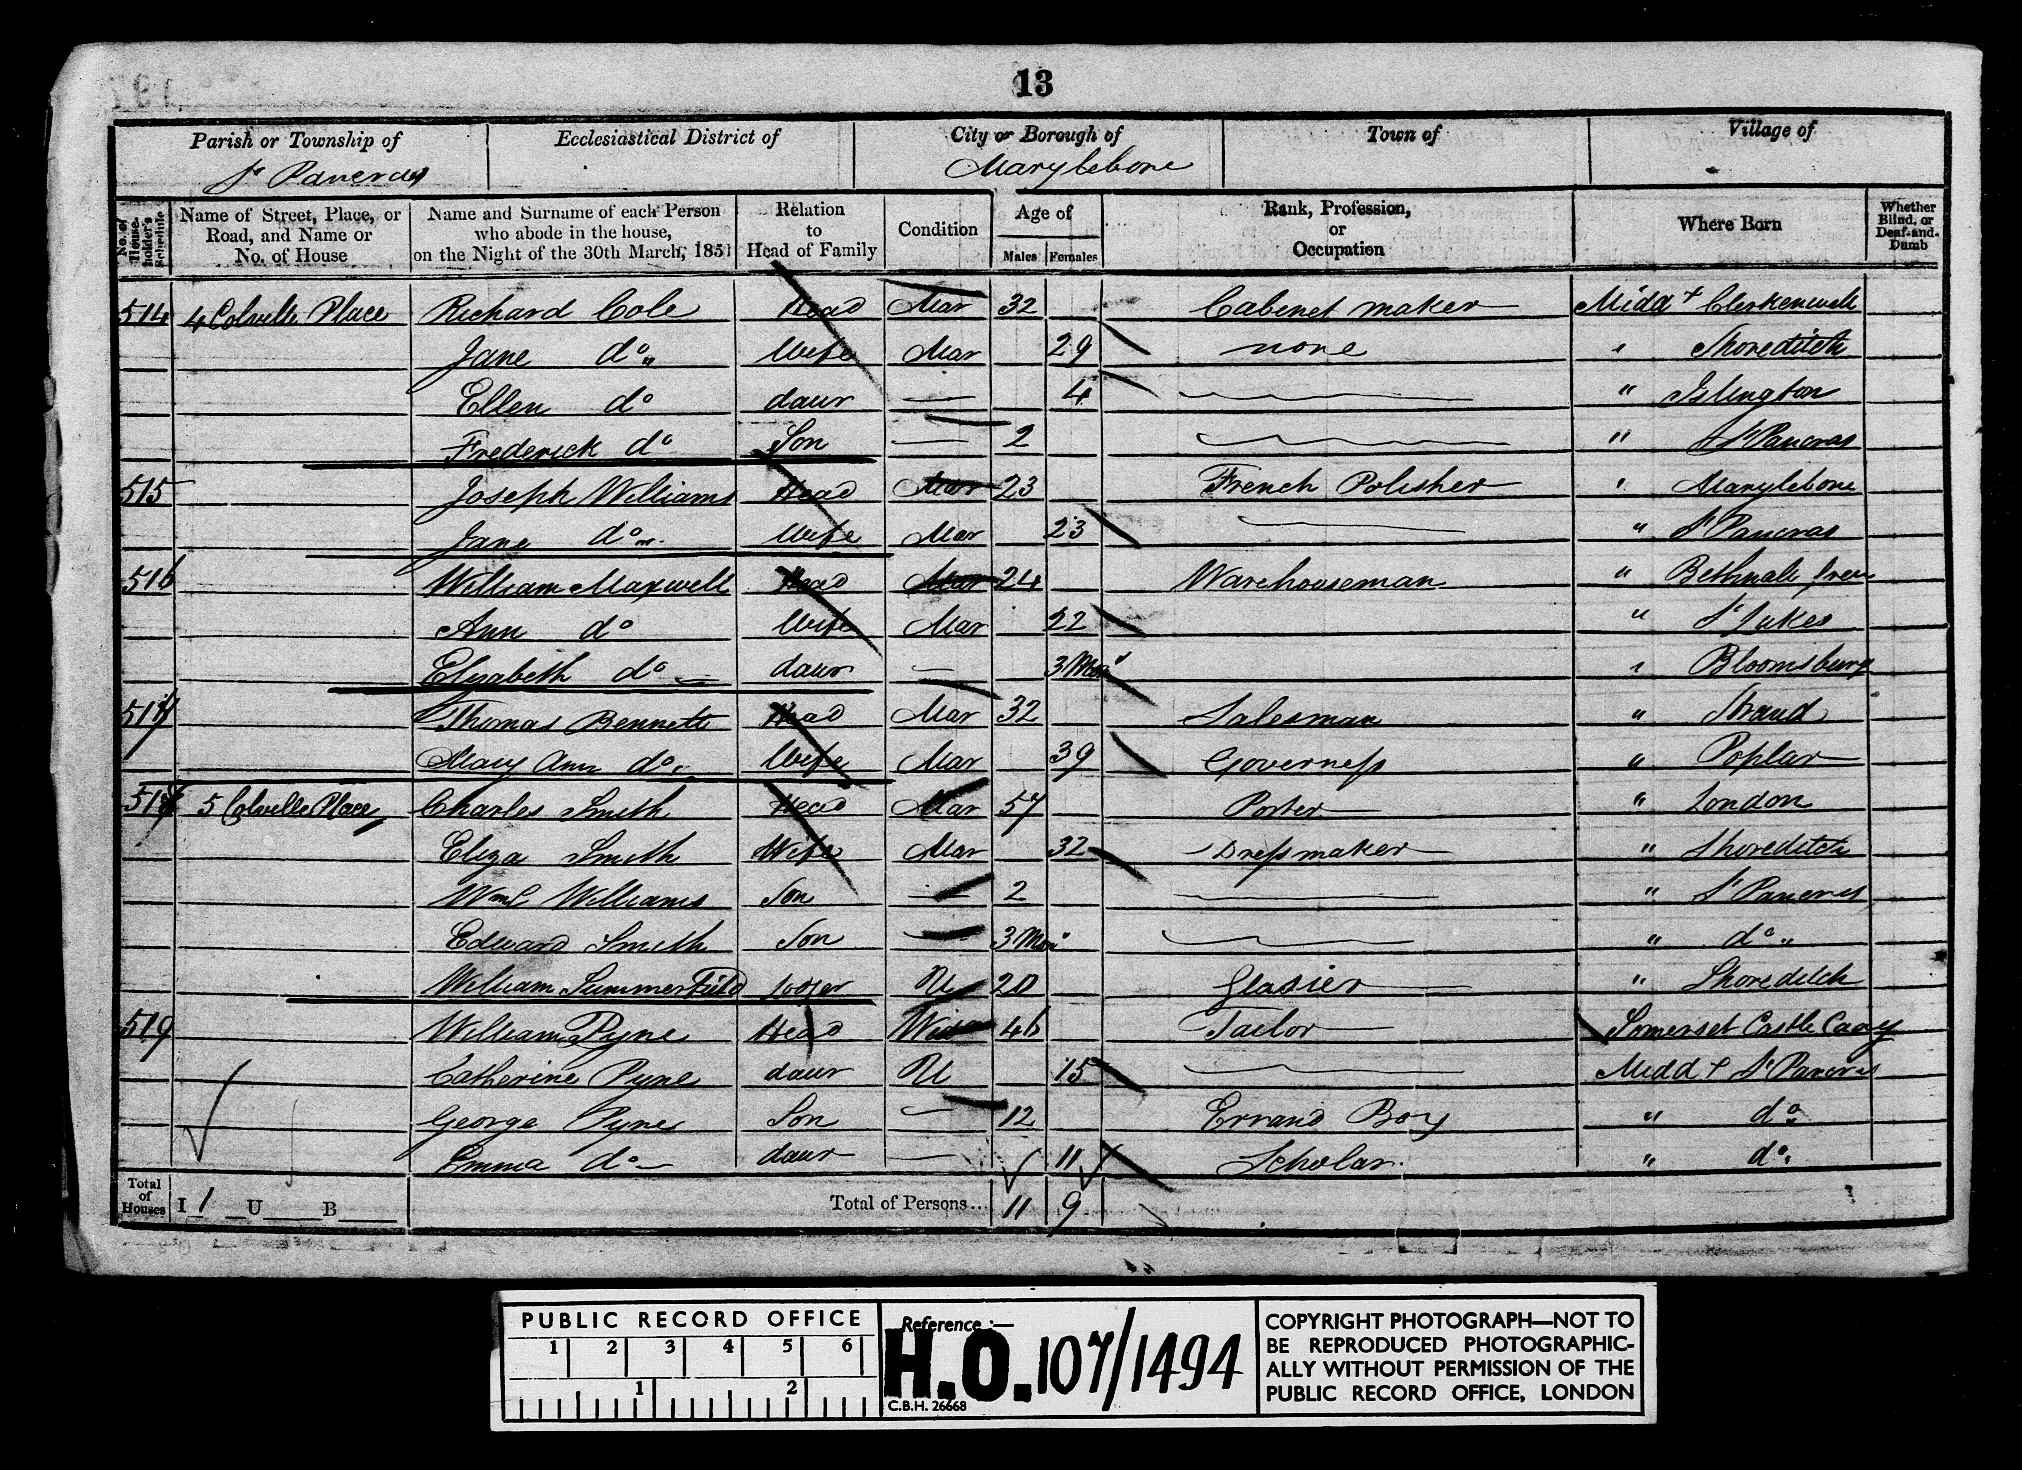 13
Parish or Township of Ecclesiastical District of City or Borough of Town of Village of
St Pancras Marylebone
No. of House-holder's Schedule Name of Street, Place, or Road, and Name or No. of House Name and Surname of each Person who abode in the house, on the Night of the 30th March, 1851 Relation to Head of Family Condition Age of Males Females Rank, Profession, or Occupation Where Born Whether Blind, or Deaf-and-Dumb
514 4 Colville Place Richard Cole Head Mar 32 Cabenet maker Midd x Clerkenwell
Jane do Wife Mar 29 none " Shoreditch
Ellen do daur — 4 " Islington
Frederick do Son — 2 " St Pancras
515 Joseph Williams Head Mar 23 French Polisher " Marylebone
Jane do Wife Mar 23 " St Pancras
516 William Maxwell Head Mar 24 Warehouseman " Bethnall Green
Ann do Wife Mar 22 " St Lukes
Elizabeth do daur — 3 Mon " Bloomsbury
517 Thomas Bennett Head Mar 32 Salesman " Strand
Mary Ann do Wife Mar 39 Governess " Poplar
518 5 Colville Place Charles Smith Head Mar 57 Porter " London
Eliza Smith Wife Mar 32 Dressmaker " Shoreditch
Wm Williams Son — 2 " St Pancras
Edward Smith Son — 3 Mon " do
William Summerfield lodger U 20 Glasier " Shoreditch
519 William Pyne Head Wid 46 Tailor Somerset Castle Cary
Catherine Pyne daur U 15 Midd x St Pancras
George Pyne Son — 12 Errand Boy " do
Emma do daur — 11 Scholar " do
Total of Houses I 1 U B Total of Persons... 11 9
PUBLIC RECORD OFFICE
1 2 3 4 5 6
1 2
Reference :—
H.O. 107/1494
C.B.H. 26668
COPYRIGHT PHOTOGRAPH—NOT TO
BE REPRODUCED PHOTOGRAPHIC-
ALLY WITHOUT PERMISSION OF THE
PUBLIC RECORD OFFICE, LONDON